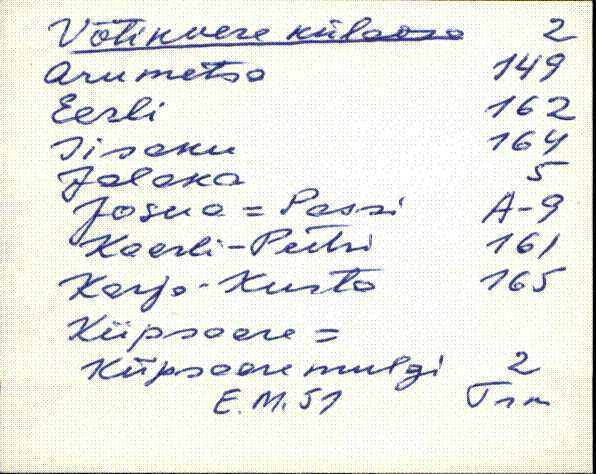 Võtikvere külaosa 2
Arumetsa 149
Eerli 162
Iisaku 164
Jalaka 5
Josua = Passi A-9
Kaarli-Peetri 161
Karja-Kusta 165
Küpsaare =
Küpsaaremulgi 2
E.M. 51 Trm